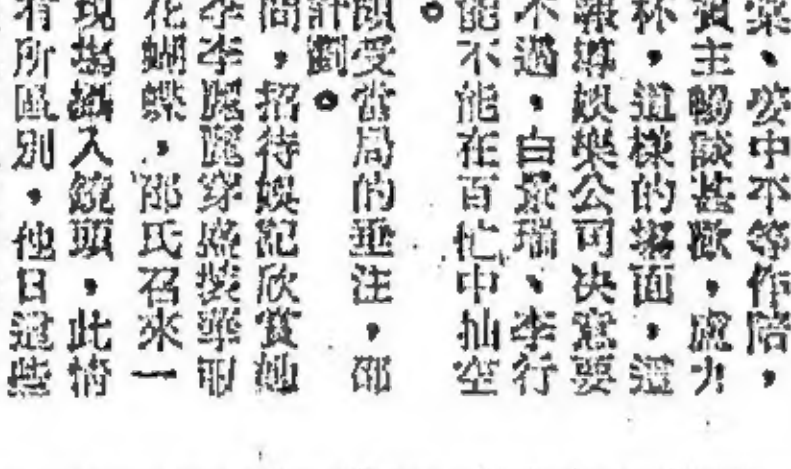 、中不等作陪，
賓主暢談甚歡，力
杯，這樣的場面，這
報導娛樂公司決意要
不過，白景瑞、李行
能不能在百忙中抽空
。
頗受當局的垂注，邵
計劃。
間，招待娛記欣賞她
李麗麗穿盛裝率
花蝴蝶，邵氏召來一
現場攝入鏡頭，此情
有所區別，他日這些